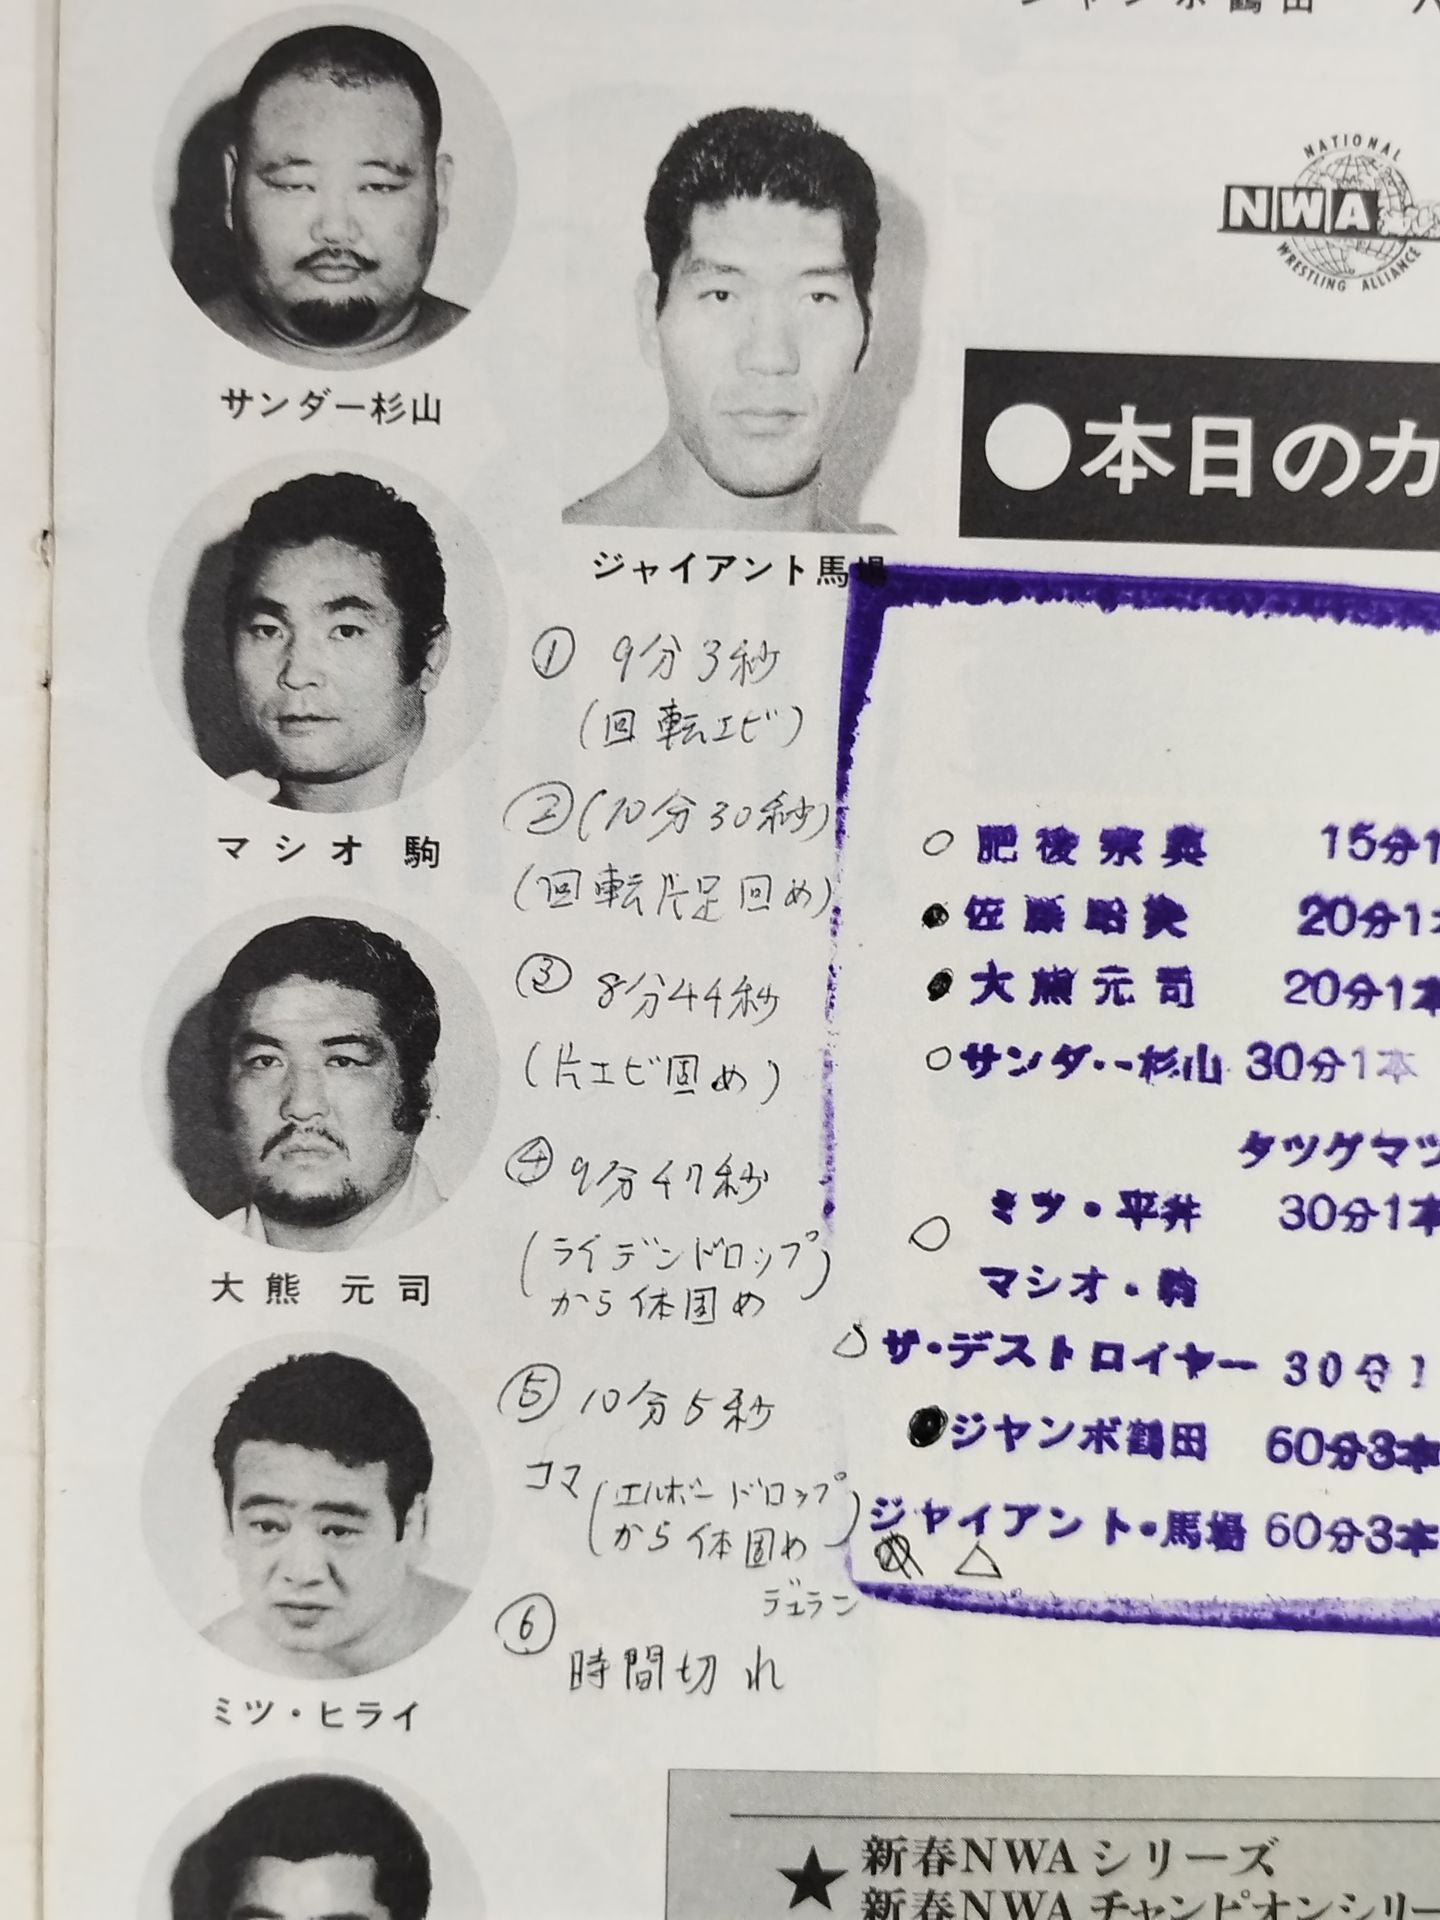 サンダー杉山
マシオ 駒
大熊 元司
ミツ・ヒライ
ジャイアント馬場
① 9分3秒
(回転エビ)
②(10分30秒)
(回転片足固め)
③ 8分44秒
(片エビ固め)
④ 9分47秒
(ライデンドロップ
から体固め)
⑤ 10分5秒
コマ(エルボードロップ
から体固め)
デュラン
⑥
時間切れ
NATIONAL
NWA
WRESTLING ALLIANCE
●本日のカ
○ 肥後宗典 15分1
● 佐藤昭夫 20分1本
● 大熊元司 20分1本
○ サンダー杉山 30分1本
タッグマッ
ミツ・平井 30分1本
○
マシオ・駒
△ ザ・デストロイヤー 30分1
● ジャンボ鶴田 60分3本
ジャイアント・馬場 60分3本
△
★ 新春NWAシリーズ
新春NWAチャンピオンシリー